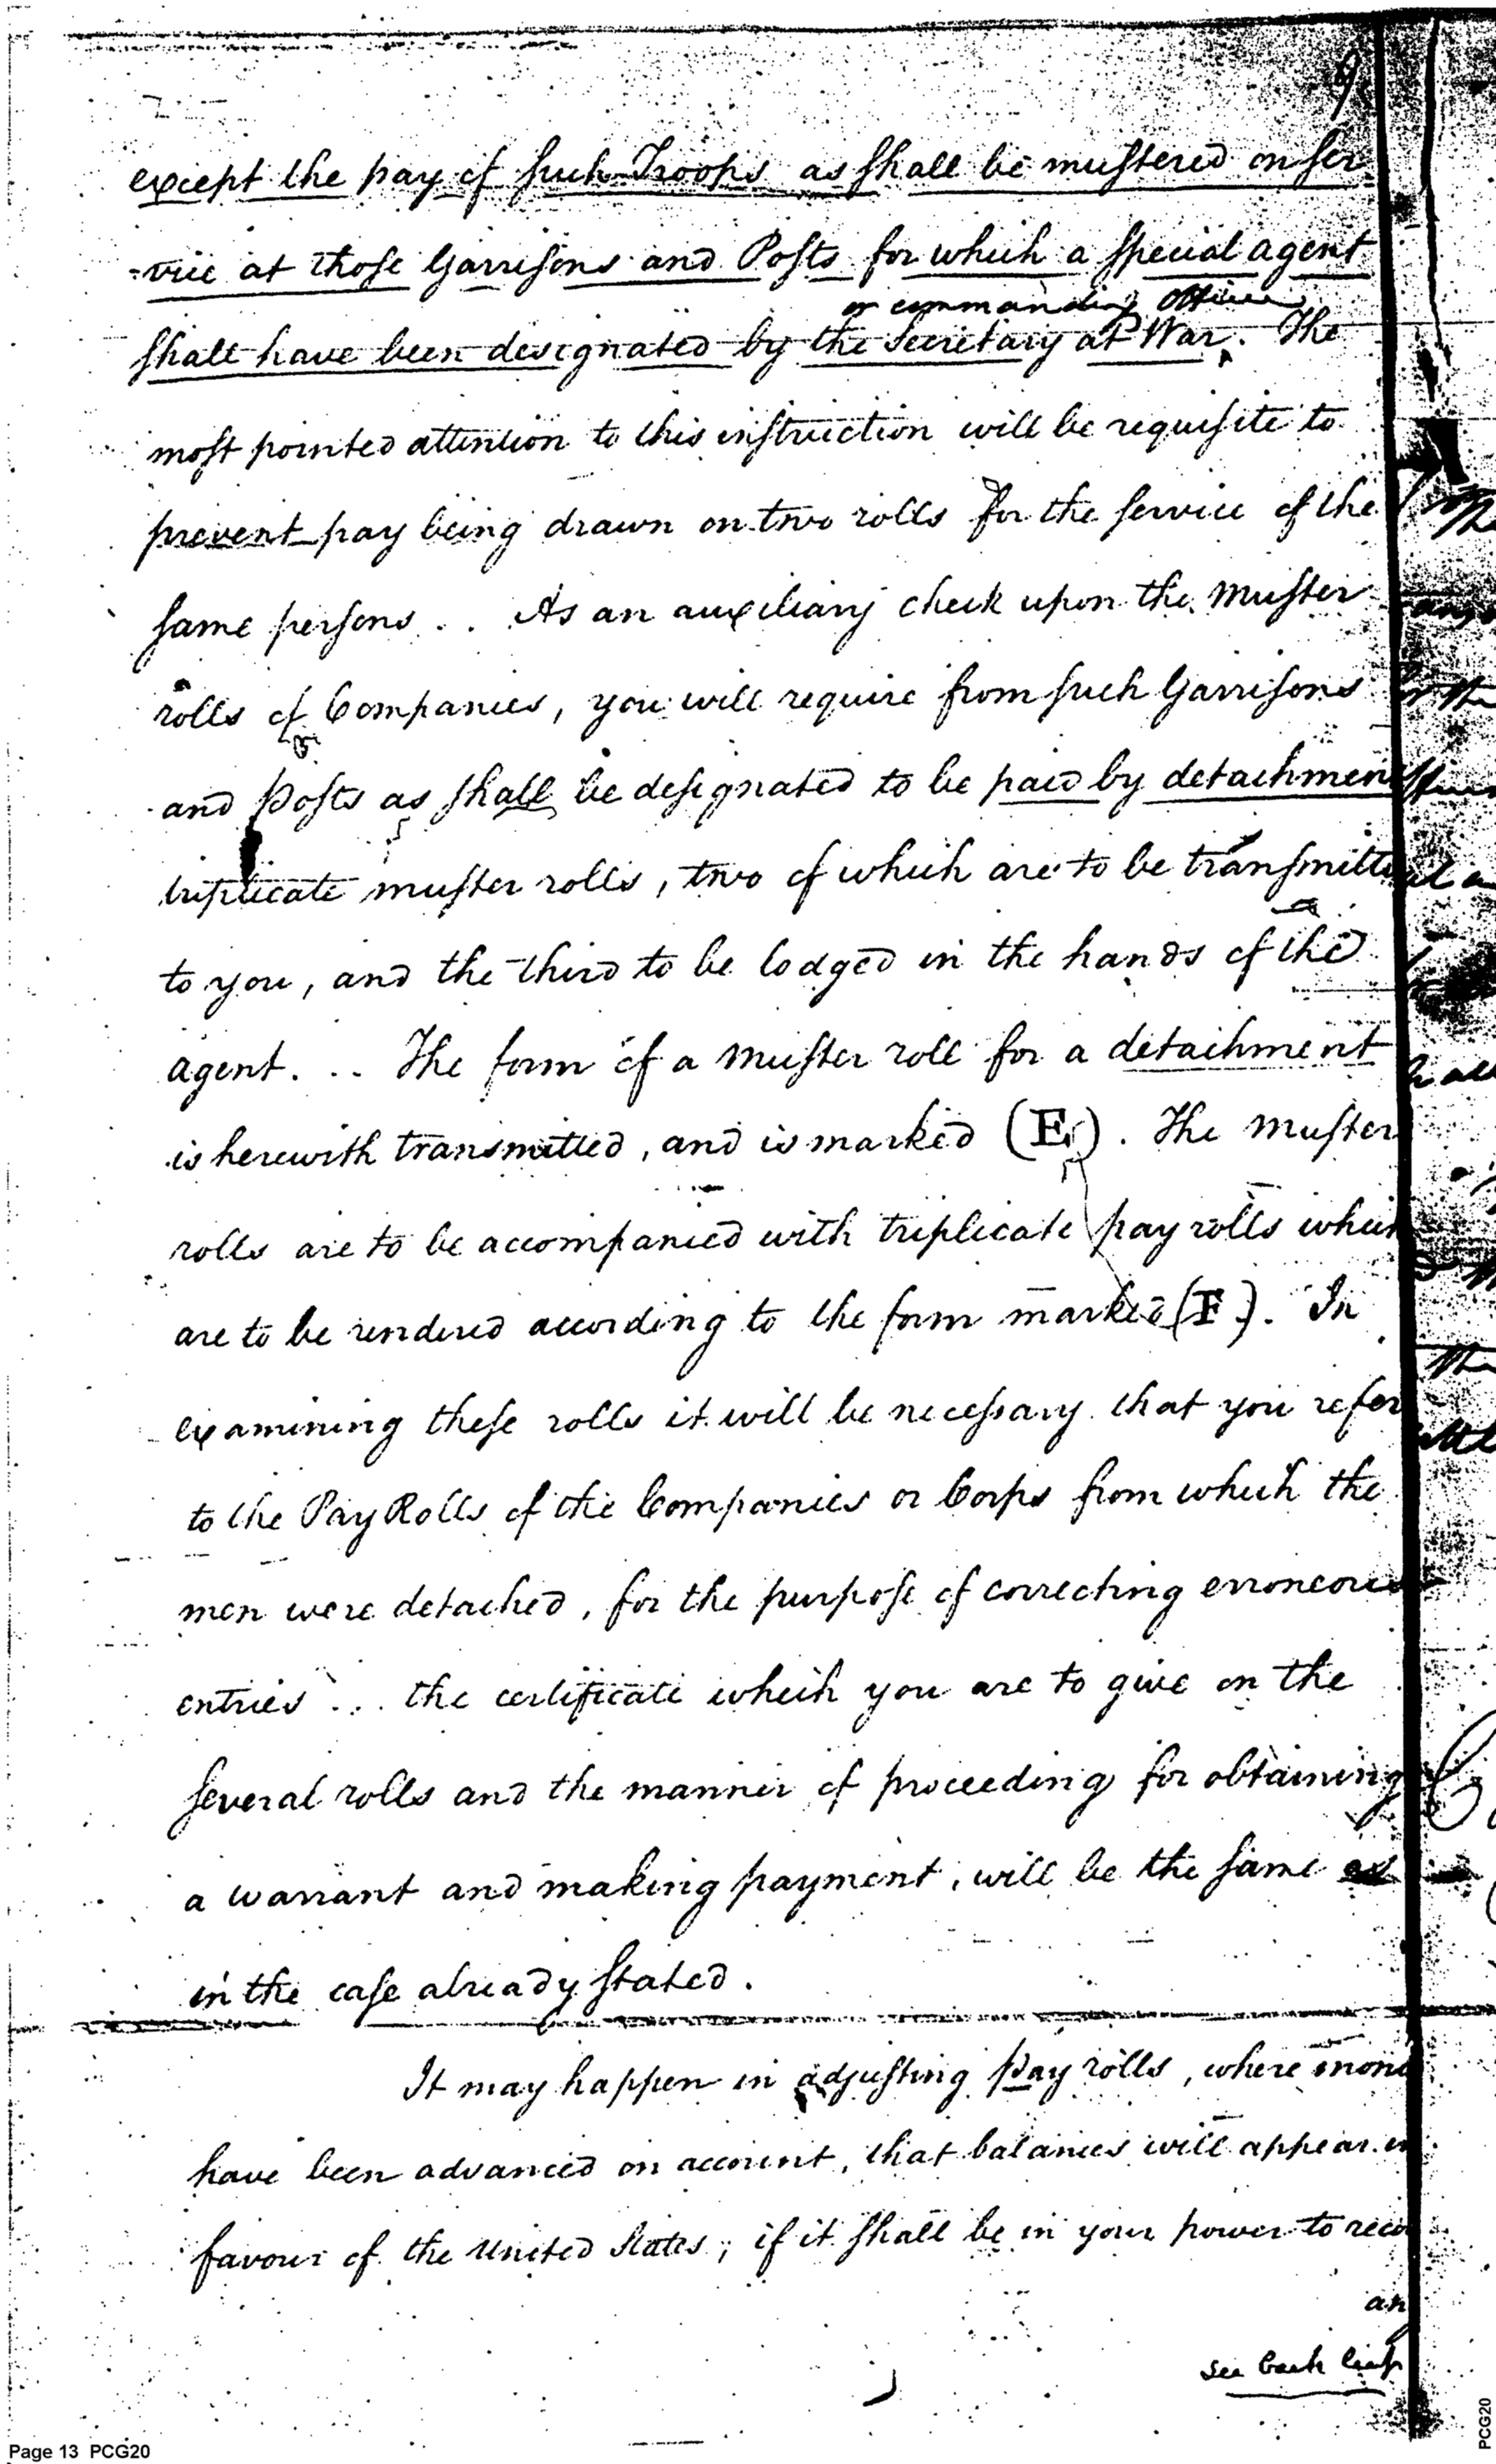 9
except the pay of such Troops as shall be mustered on ser
-vice at those Garrisons and Posts for which a special agent
or commanding officer
shall have been designated by the Secretary at War. The
most pointed attention to this instruction will be requisite to
prevent pay being drawn on two rolls for the service of the
same persons .. As an auxiliary check upon the muster
rolls of Companies, you will require from such Garrisons
and Posts as shall be designated to be paid by detachment
triplicate muster rolls, two of which are to be transmitte
to you, and the third to be lodged in the hands of the
agent. .. The form of a muster roll for a detachment
is herewith transmitted, and is marked (E). The muster
rolls are to be accompanied with triplicate pay rolls which
are to be rendered according to the form marked (F). In
examining these rolls it will be necessary that you refer
to the Pay Rolls of the Companies or Corps from which the
men were detached, for the purpose of correcting erroneous
entries ... the certificate which you are to give on the
several rolls and the manner of proceeding for obtaining
a warrant and making payment, will be the same as
in the case already stated.
It may happen in adjusting pay rolls, where mone
have been advanced on account, that balances will appear in
favour of the United States; if it shall be in your power to reco
an
see back leaf
Page 13 PCG20
PCG20